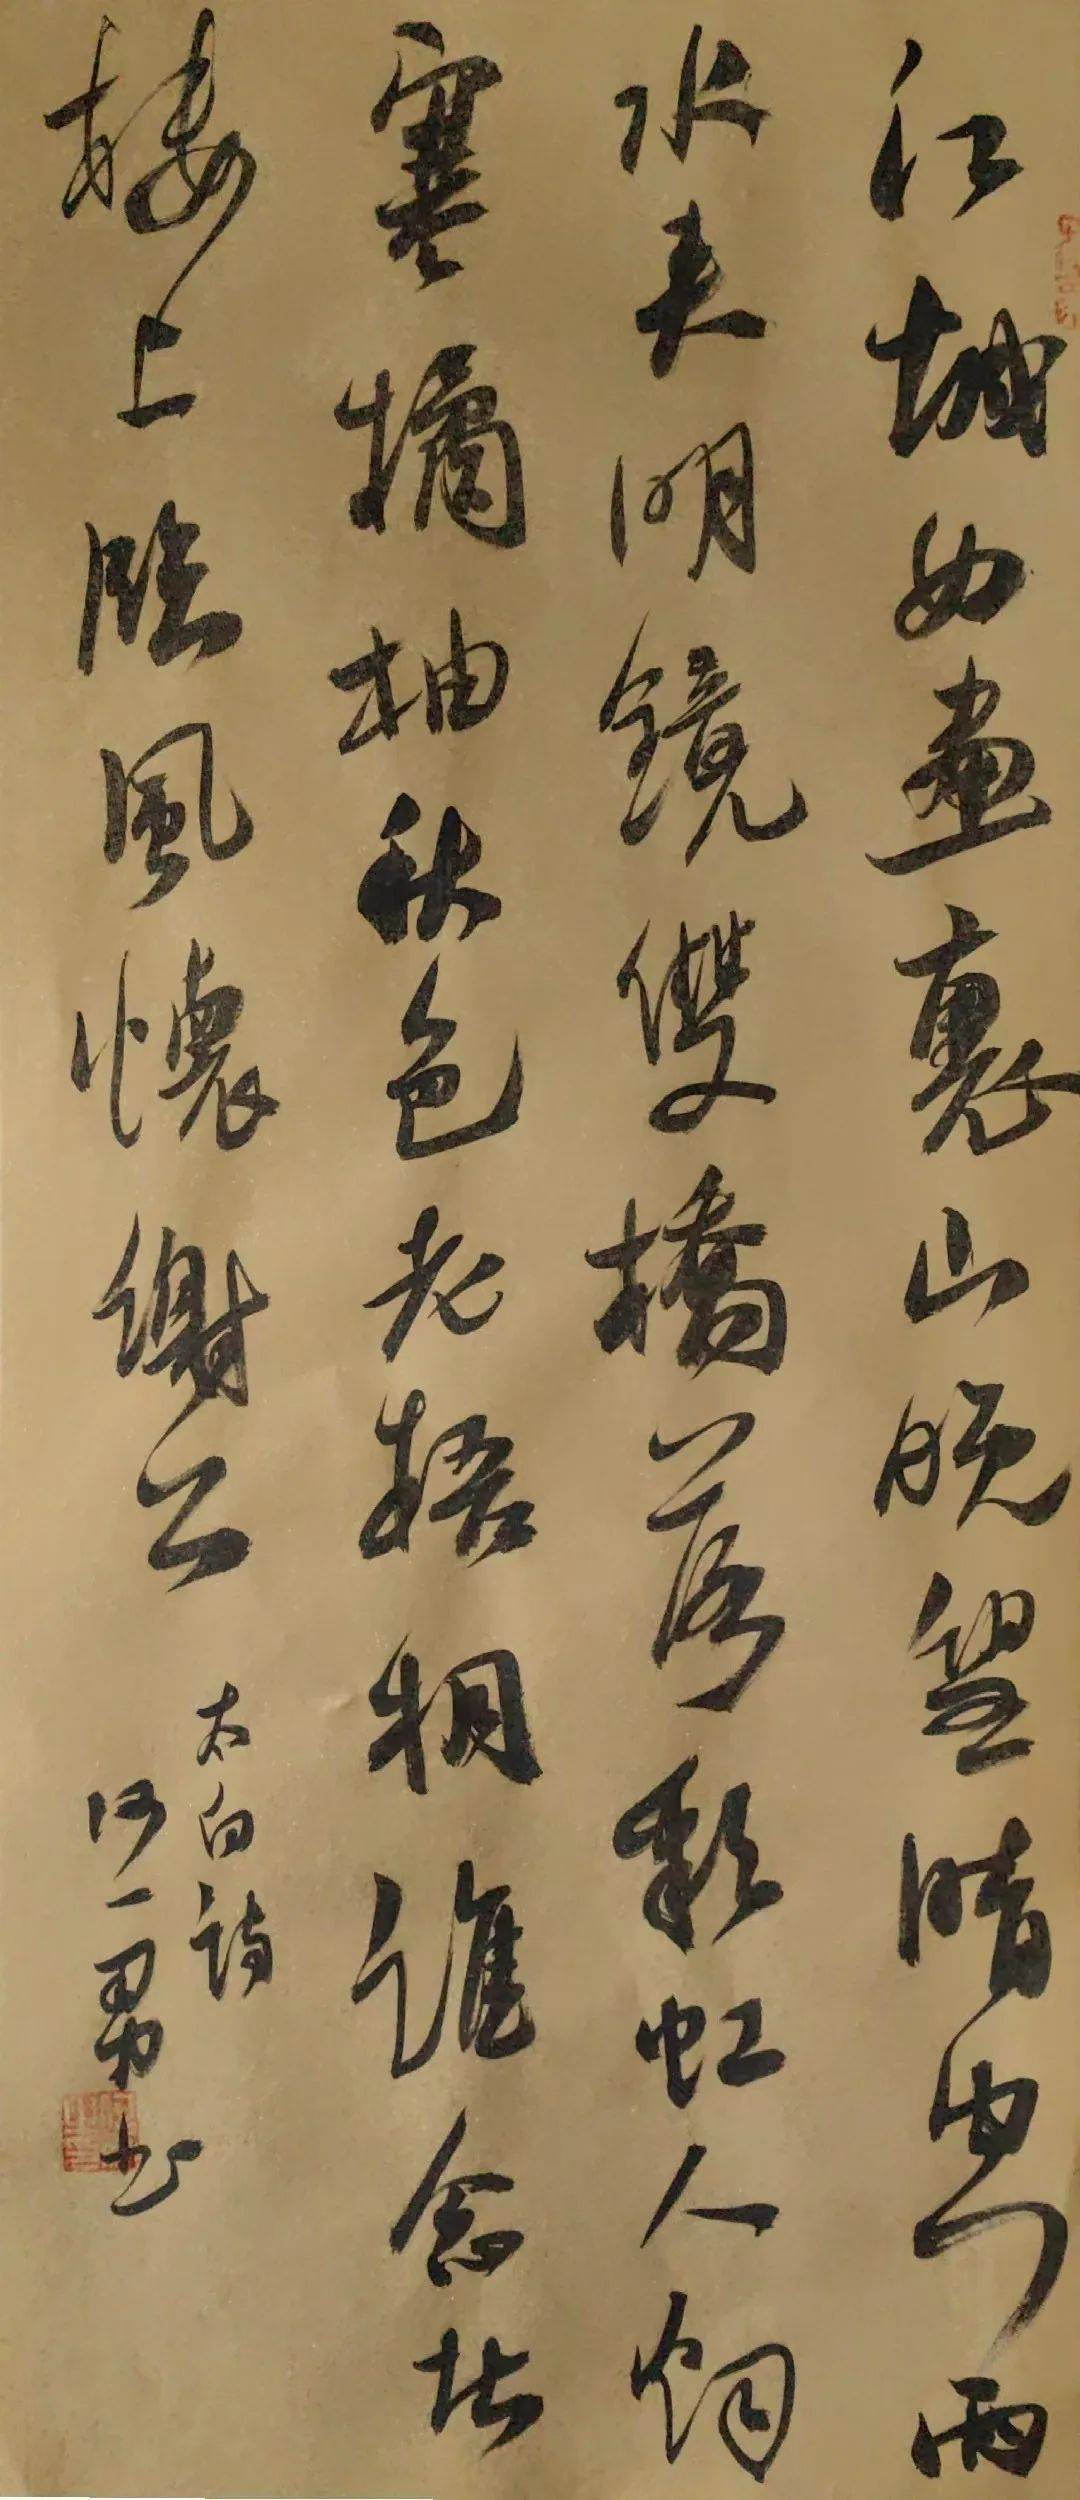 江城如畫裏山晚望晴空雨
水夾明鏡雙橋落彩虹人烟
寒橘柚秋色老梧桐誰念北
樓上臨風懷謝公
太白詩
一 书